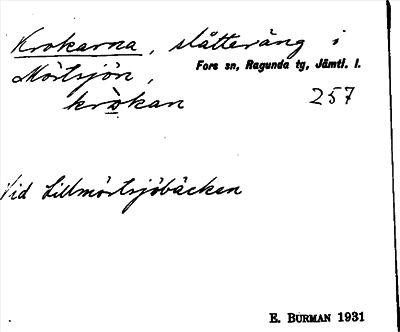 Krokarna, slåtteräng i
Mörtsjön, Fors sn, Ragunda tg, Jämtl. l.
krò̱kan 257
Vid Lillmörtsjöbäcken
E. BURMAN 1931